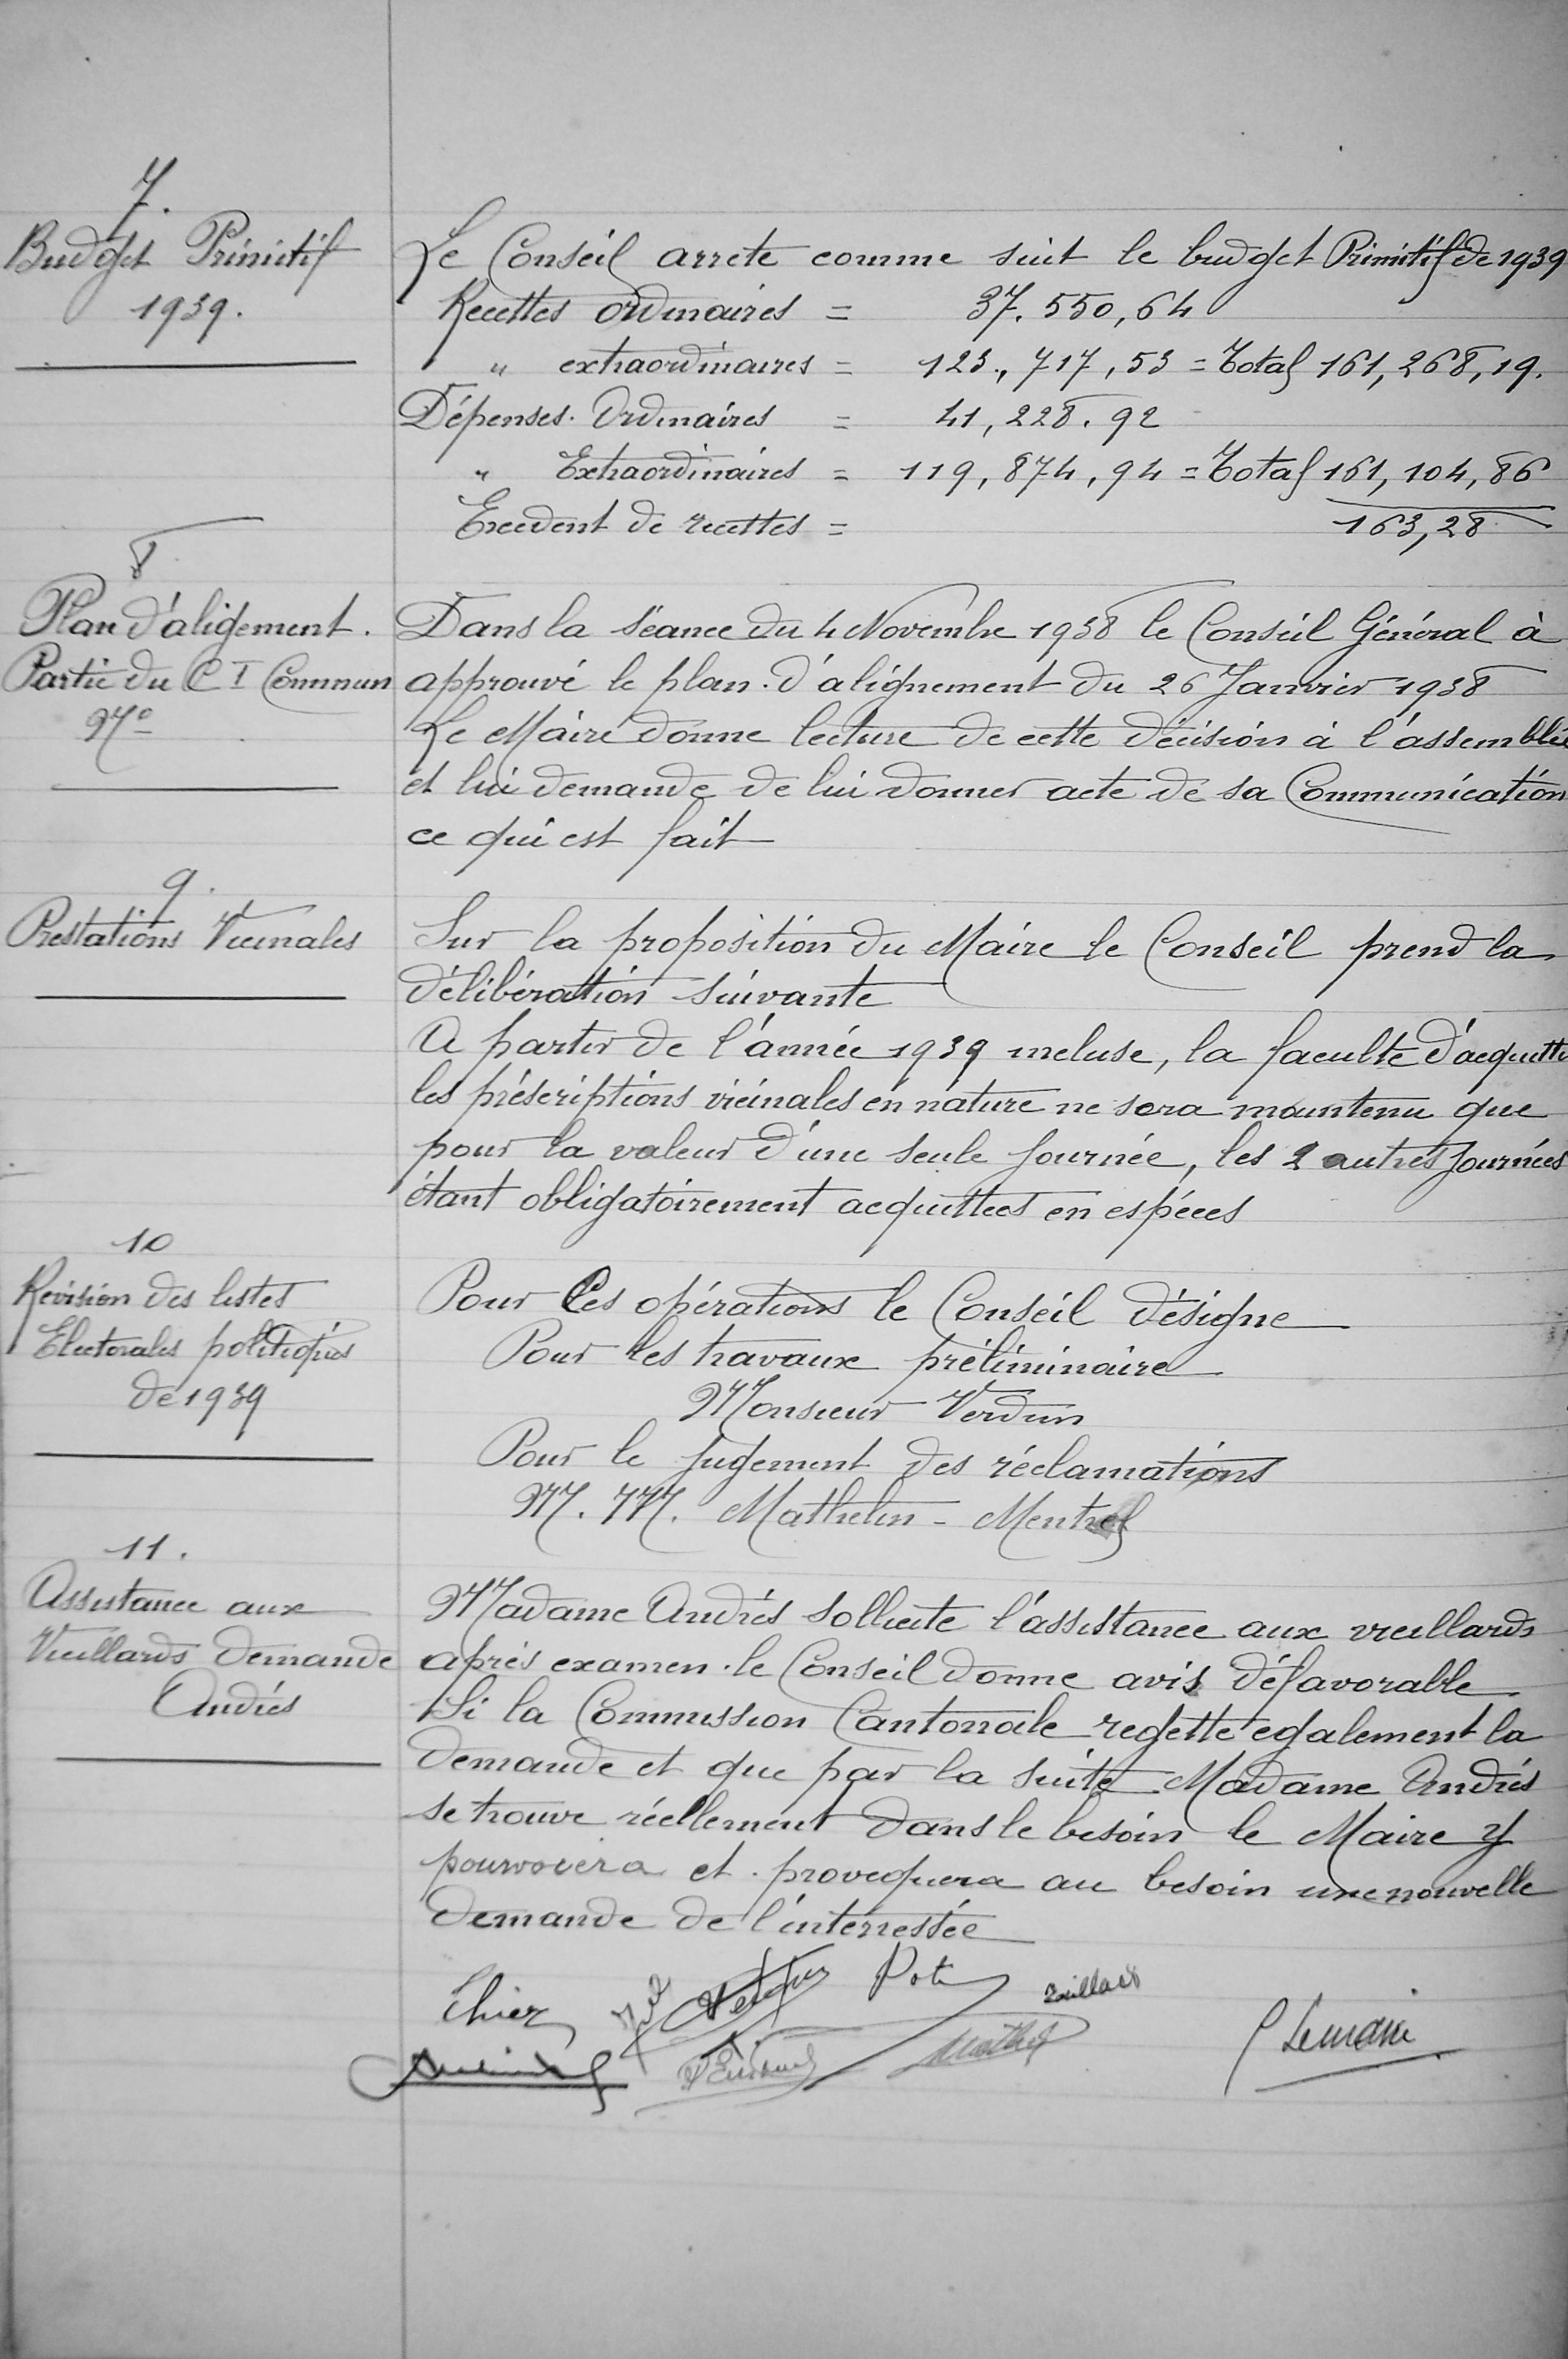 7.
Budget Primitif
1939.
Le Conseil arrete comme suit le budget Primitif de 1939
Recettes ordinaires = 37.550,64
" extraordinaires = 123.,717,53 = Total 161,268,19.
Dépenses. Ordinaires = 41,228.92
" Extraordinaires = 119,874,94 = Total 161,104,86
Excedent de recettes = 163,28
8
Plan d'aligement.
Partie du C I Commun
Dans la séance du 4 Novembre 1938 le Conseil Général à
approuvé le plan. d'alignement du 26 Janvier 1938
Le Maire donne lecture de cette décision à l'assemblée
et lui demande de lui donner acte de sa Communication
ce qui est fait
9.
Prestations Vicinales
Sur la proposition du Maire le Conseil prend la
délibérattion suivante
A partir de l'année 1939 incluse, la faculté d'acquitte
les préscriptions vicinales en nature ne sera maintenu que
pour la valeur d'une seule journée, les 2 autres journées
étant obligatoirement acquittees en espéces
10
Révision des listes
Electorales politiques
de 1939
Pour Ces opérations le Conseil désigne
Pour les travaux préliminaire
Monsieur Verdun
Pour le jugement des réclamations
M. M. Mathelin - Mentrel
11.
Assistance aux
Vieillards Demande
Andrés
Madame Andrés sollicite l'assistance aux vieillards
aprés examen. le Conseil donne avis défavorable
Si la Commission Cantonale regette egalement la
demande et que par la suite Madame Andrés
se trouve réellement dans le besoin le Maire y
pourvoiera et. provoquera au besoin une nouvelle
demande de l'interressée
Thiez
Lemaire